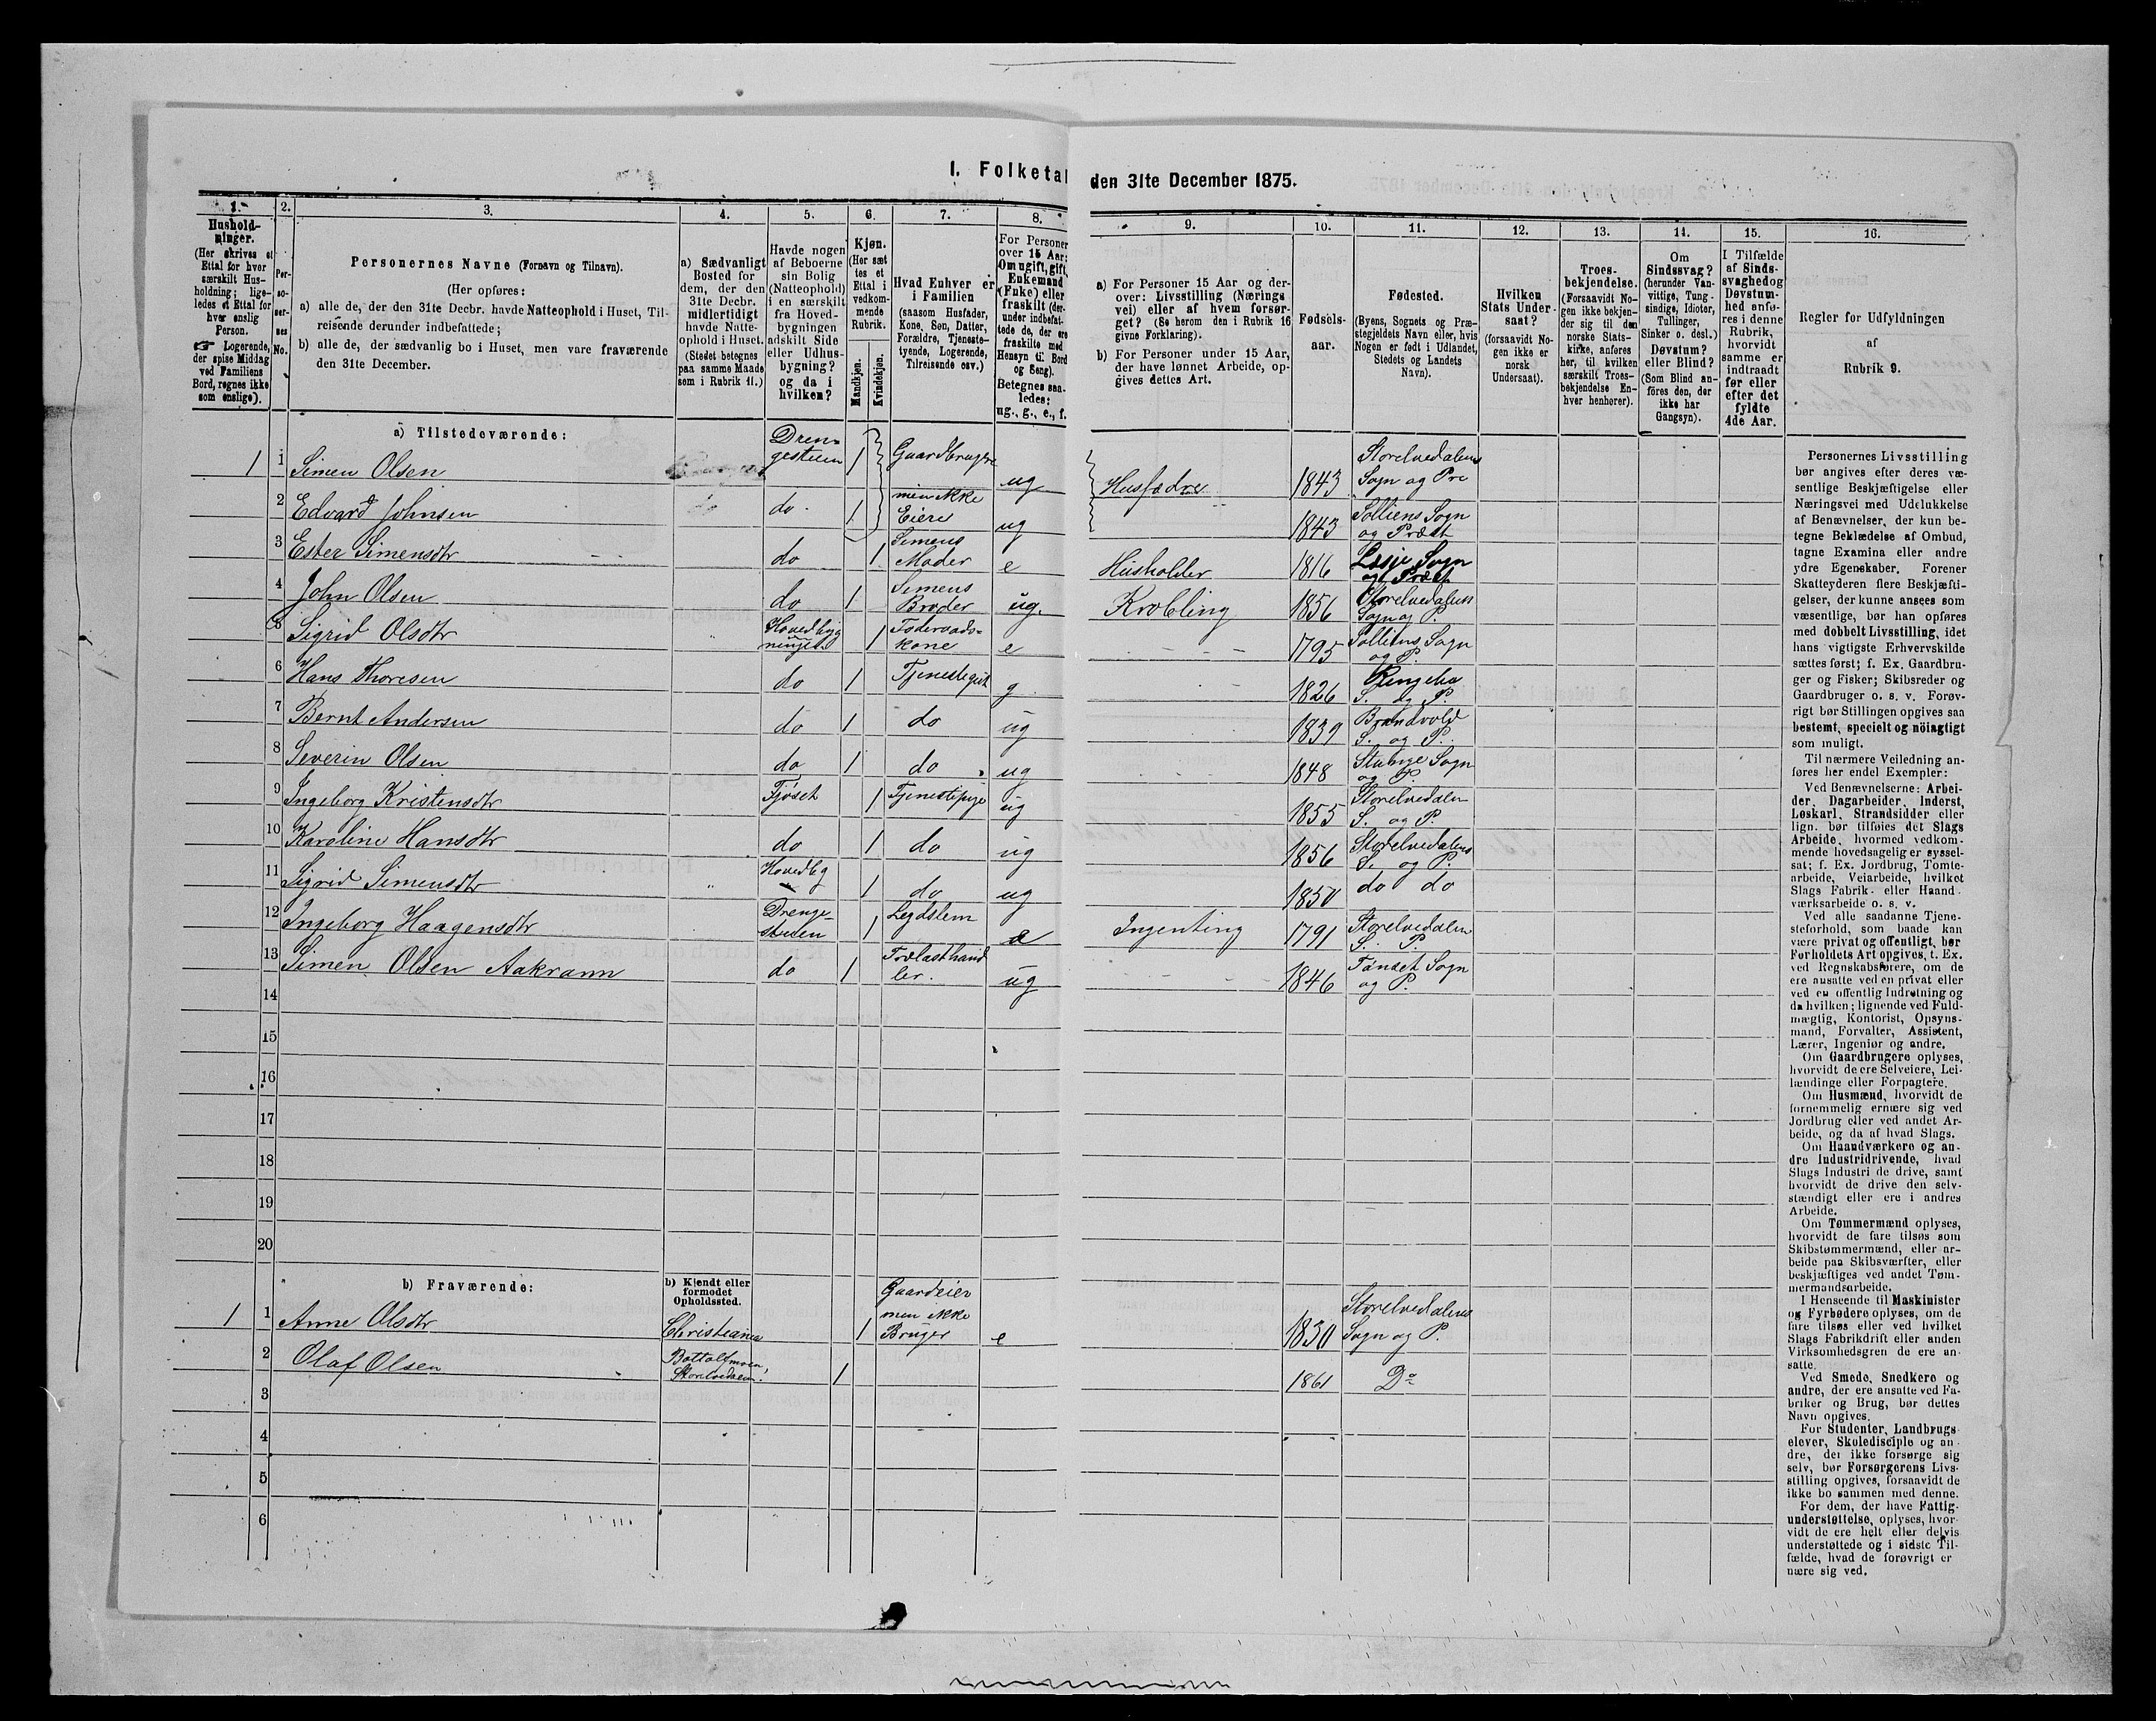 I. Folketal
den 31te December 1875.
1.
2.
3.
4.
5.
6.
7.
8.
9.
10.
11.
12.
13.
14.
15.
16.
Hushold-
ninger.
(Her skrives et
Ettal for hver
særskilt Hus-
holdning; lige-
ledes et Ettal for
hver enslig
Person.
☞ Logerende,
der spise Middag
ved Familiens
Bord, regnes ikke
som enslige).
Per-
so-
ner-
nes
No.
Personernes Navne (Fornavn og Tilnavn).
(Her opføres:
a) alle de, der den 31te Decbr. havde Natteophold i Huset, Til-
reisende derunder indbefattede;
b) alle de, der sædvanlig bo i Huset, men vare fraværende
den 31te December.
a) Sædvanligt
Bosted for
dem, der den
31te Decbr.
midlertidigt
havde Natte-
ophold i Huset.
(Stedet betegnes
paa samme Maade
som i Rubrik 11.)
Havde nogen
af Beboerne
sin Bolig
(Natteophold)
i en særskilt
fra Hoved-
bygningen
adskilt Side
eller Udhus-
bygning?
og da i
hvilken?
Kjøn.
(Her sæt
tes et
Ettal i
vedkom-
mende
Rubrik.
Mandkjøn.
Kvindekjøn.
Hvad Enhver er
i Familien
(saasom Husfader,
Kone, Søn, Datter,
Forældre, Tjeneste-
tyende, Logerende,
Tilreisende osv.)
For Personer
over 15 Aar:
Om ugift, gift,
Enkemand
(Enke) eller
fraskilt (der-
under indbefat-
tede de, der ere
fraskilte med
Hensyn til Bord
og Seng).
Betegnes saa-
ledes:
ug., g., e., f.
a) For Personer 15 Aar og der-
over: Livsstilling (Nærings
vei) eller af hvem forsør-
get? (Se herom den i Rubrik 16
givne Forklaring).
b) For Personer under 15 Aar,
der have lønnet Arbeide, op-
gives dettes Art.
Fødsels-
aar.
Fødested.
(Byens, Sognets og Præ-
stegjeldets Navn eller, hvis
Nogen er født i Udlandet,
Stedets og Landets
Navn).
Hvilken
Stats Under-
saat?
(forsaavidt No-
gen ikke er
norsk
Undersaat).
Troes-
bekjendelse.
(Forsaavidt No-
gen ikke bekjen-
der sig til den
norske Stats-
kirke, anføres
her, til hvilken
særskilt Troes-
bekjendelse En-
hver henhører).
Om
Sindssvag?
(herunder Van-
vittige, Tung-
sindige, Idioter,
Tullinger,
Sinker o. desl.)
Døvstum?
eller Blind?
(Som Blind an-
føres den, der
ikke har
Gangsyn).
I Tilfælde
af Sinds-
svaghed og
Døvstum-
hed anfø-
res i denne
Rubrik,
hvorvidt
samme er
indtraadt
før eller
efter det
fyldte
4de Aar.
Regler for Udfyldningen
af
Rubrik 9.
a) Tilstedeværende:
1 1 Simen Olsen Drengestuen 1 Gaardbrugere ug Husfædre 1843 Storelvedalens Sogn og Pre
2 Edvard Johnsen do 1 men ikke Eiere ug 1843 Solliens Sogn og Præst
3 Ester Simensdtr do 1 Simens Moder e Husholder 1816 Lesje Sogn og Præst
4 John Olsen do 1 Simens Broder ug. Krøbling 1856 Storelvedalens Sogn og P.
5 Sigrid Olsdtr 1 Foderaads- kone e 1795 Solliens Sogn og P.
6 Hans Thoresen do 1 g 1826 Ringebo S. og P.
7 Bernt Andersen do 1 do ug 1839 Brandvold S. og P.
8 Severin Olsen do 1 do ug 1848 Stange Sogn og P.
9 Ingeborg Kristensdtr Fjøset 1 Tjenestepige ug 1855 Storelvedalen S. og P.
10 Karoline Hansdtr do 1 do ug 1856 Storelvedalens S. og P.
11 Sigrid Simensdtr Hovedbyg 1 do ug 1850 do do
12 Ingeborg Haagensdtr Drenge- stuen 1 Legdslem e Ingenting 1791 Storelvedalen S. P.
13 Simen Olsen Aakrann do 1 Trælasthand ler. ug 1846 Tønset Sogn og P.
14
15
16
17
18
19
20
b) Fraværende:
b) Kjendt eller
formodet
Opholdssted.
1 1 Anne Olsdtr Christiania 1 Gaardeier men ikke Bruger e 1830 Storelvedalens Sogn og P.
2 Olaf Olsen Storelvedalen. 1 1861 Do
3
4
5
6
Personernes Livsstilling
bør angives efter deres væ-
sentlige Beskjæftigelse eller
Næringsvei med Udelukkelse
af Benævnelser, der kun be-
tegne Beklædelse af Ombud,
tagne Examina eller andre
ydre Egenskaber. Forener
Skatteyderen flere Beskjæfti-
gelser, der kunne ansees som
væsentlige, bør han opføres
med dobbelt Livsstilling, idet
hans vigtigste Erhvervskilde
sættes først; f. Ex. Gaardbru-
ger og Fisker; Skibsreder og
Gaardbruger o. s. v. Forøv-
rigt bør Stillingen opgives saa
bestemt, specielt og nöiagtigt
som muligt.
Til nærmere Veiledning an-
føres her endel Exempler:
Ved Benævnelserne: Arbei-
der, Dagarbeider, Inderst,
Løskarl, Strandsidder eller
lign. bør tilføies det Slags
Arbeide, hvormed vedkom-
mende hovedsagelig er syssel-
sat; f. Ex. Jordbrug, Tomte-
arbeide, Veiarbeide, hvilket
Slags Fabrik- eller Haand-
værksarbeide o. s. v.
Ved alle saadanne Tjene-
steforhold, som baade kan
være privat og offentligt, bør
Forholdets Art opgives, t. Ex.
ved Regnskabsførere, om de
ere ansatte ved en privat eller
ved en offentlig Indretning og
da hvilken; lignende ved Fuld-
mægtig, Kontorist, Opsyns-
mand, Forvalter, Assistent,
Lærer, Ingeniør og andre.
Om Gaardbrugere oplyses,
hvorvidt de ere Selveiere, Lei-
lændinge eller Forpagtere.
Om Husmænd, hvorvidt de
fornemmelig ernære sig ved
Jordbrug eller ved andet Ar-
beide, og da af hvad Slags.
Om Haandværkere og an-
dre Industridrivende, hvad
Slags Industri de drive, samt
hvorvidt de drive den selv-
stændigt eller ere i andres
Arbeide.
Om Tømmermænd oplyses,
hvorvidt de fare tilsøs som
Skibstømmermænd, eller ar-
beide paa Skibsværfter, eller
beskjæftiges ved andet Tøm-
mermandsarbeide.
I Henseende til Maskinister
og Fyrbødere oplyses, om de
fare tilsøs eller ved hvilket
Slags Fabrikdrift eller anden
Virksomhedsgren de ere an-
satte.
Ved Smede, Snedkere og
andre, der ere ansatte ved Fa-
briker og Brug, bør dettes
Navn opgives.
For Studenter, Landbrugs-
elever, Skoledisciple og an-
dre, der ikke forsørge sig
selv, bør Forsørgerens Livs-
stilling opgives, forsaavidt de
ikke bo sammen med denne.
For dem, der have Fattig-
understøttelse, oplyses, hvor-
vidt de ere helt eller delvis
understøttede og i sidste Til-
fælde, hvad de forøvrigt er
nære sig ved.